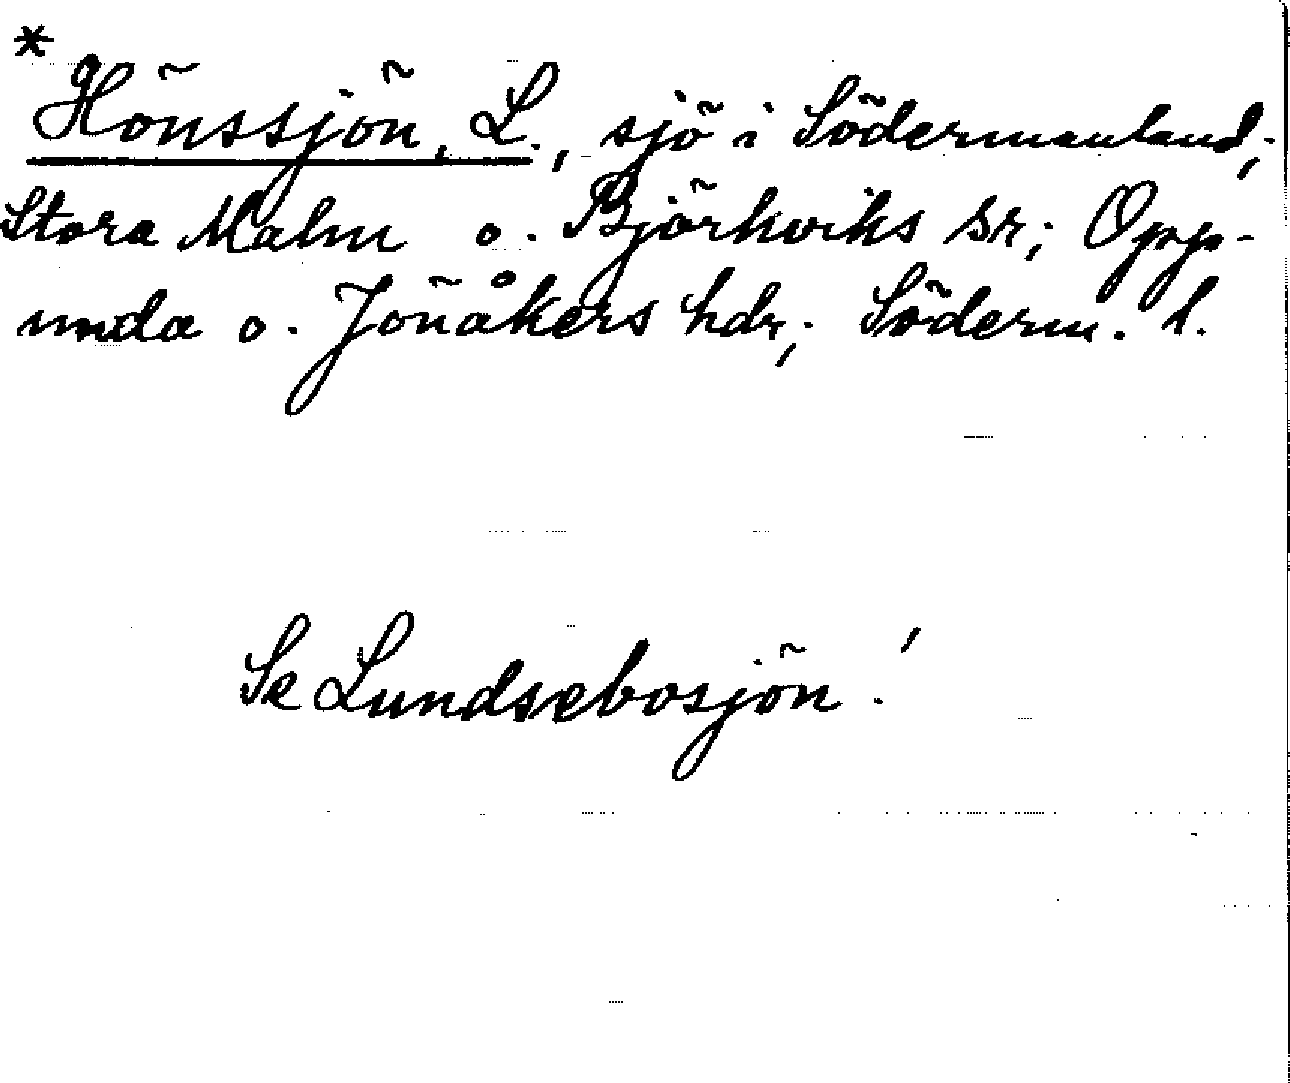 * Hönssjön, L., sjö i Södermanland;
Stora Malm o. Björkviks sr; Opp-
unda o. Jönåkers hdr; Söderm. l.
Se Lundsebosjön!